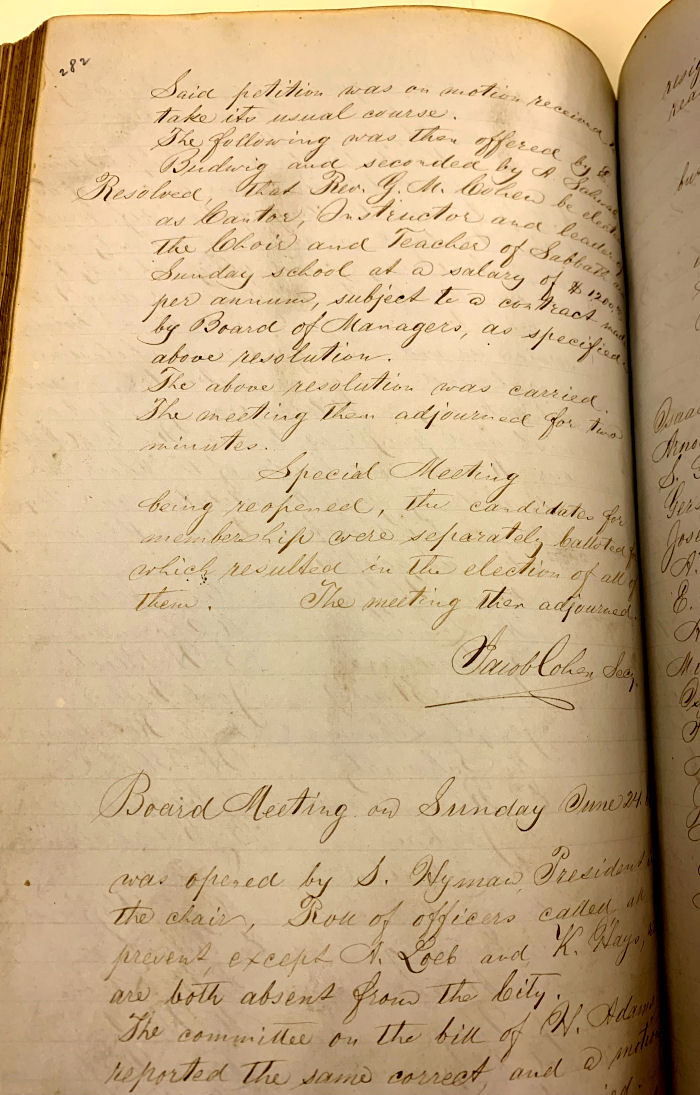 282
Said petition was on motion received
take its usual course.
The following was then offered by
Budwig and seconded by A.
Resolved, that Rev. G. M. Cohen be elect
as Cantor, Instructor and leader of
the Choir and Teacher of Sabbath
Sunday school at a salary of $ 1200
per annum, subject to a contract made
by Board of Managers, as specified
above resolution.
The above resolution was carried.
The meeting then adjourned for two
minutes.
Special Meeting
being reopened, the candidates for
membership were separately balloted
which resulted in the election of all of
them. The meeting then adjourned.
Jacob Cohen Secy.
Board Meeting on Sunday June 24.
was opened by S. Hyman, President
the chair, Roll of officers called, all
present, except A. Loeb and K. Hays,
are both absent from the City.
The committee on the bill of H. Adams
reported the same correct, and a motion